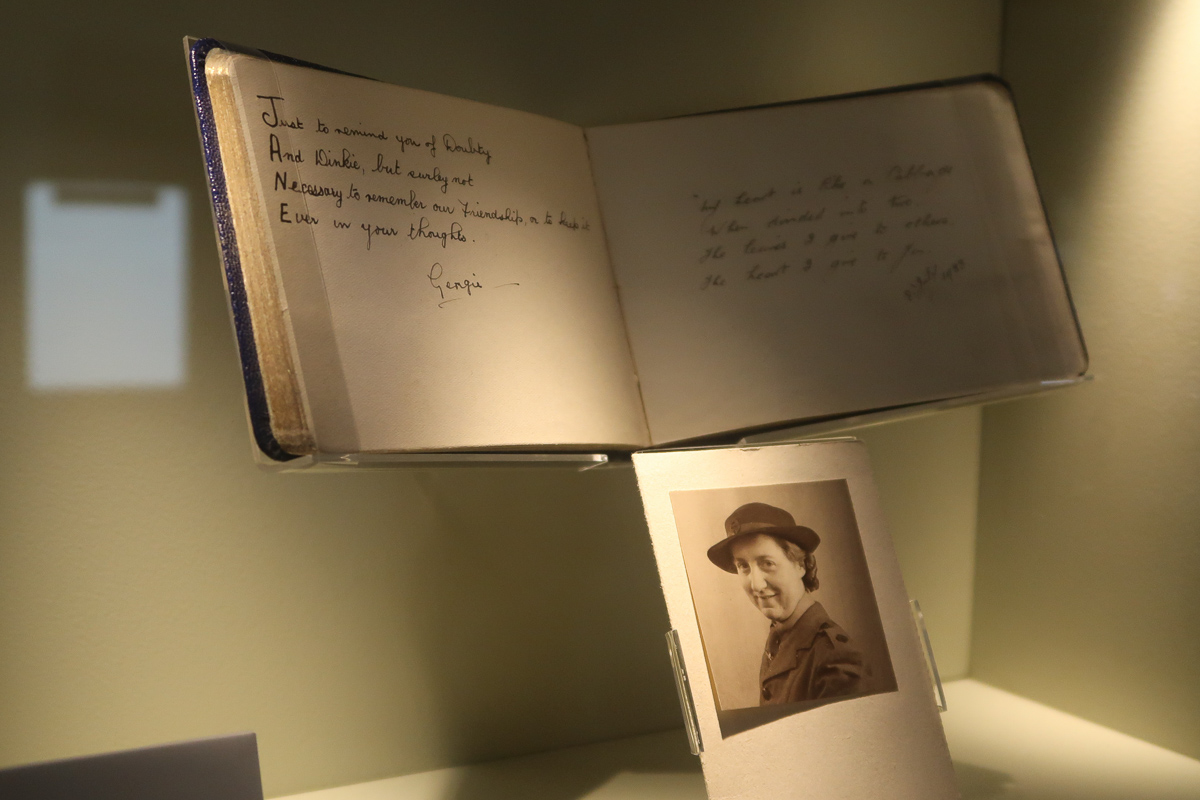 Just to remind you of Doubty
And Dinkie, but surley not
Necessary to remember our Friendship, or to keep it
Ever in your thoughts.
Georgie
heart is like a Cabbage
When divided into two
The leaves I give to others
The heart I give to you